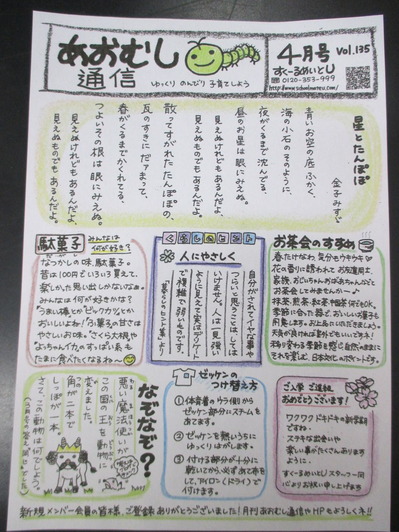 あおむし
通信
ゆっくり のんびり 子育てしよう
4月号 Vol.135
すくーるめいとU
0120-353-999
星とたんぽぽ
金子みすゞ
青いお空の底ふかく、
海の小石のそのように、
夜がくるまで沈んでる、
昼のお星は眼にみえぬ。
見えぬけれどもあるんだよ、
見えぬものでもあるんだよ。
散ってすがれたたんぽぽの、
瓦のすきにだァまって、
春がくるまでかくれてる、
つよいその根は眼にみえぬ。
見えぬけれどもあるんだよ、
見えぬものでもあるんだよ。
駄菓子
みんなは
何が好き?
なつかしの味、駄菓子。
昔は100円でいろいろ買えて、
楽しかった思い出しかないなぁ。
みんなは何が好きかな?
たまに食べたくなるわ〜
人にやさしく
自分がされてイヤな事や
つらいと思うことはしては
いけません。人は一見強い
ように見えて実はデリケート
で複雑で弱いものです。
お茶会のすすめ
春だけなわ、気分もウキウキ
花の香りに誘われてお友達同士、
家族、おじいちゃんおばあちゃんなどと
お茶会してみませんか〜♪
抹茶、煎茶、紅茶、中国茶何でもOK。
季節に合った器で、おいしいお菓子も
用意します。お上品にいただきましょう。
天気が良ければ室外でもいいですネ!
移り変わる季節を感じ自然のままに
それを楽しむ、日本対ヒのポイントです。
なぞなぞ?
悪い魔法使いが
この国の王を動物に
変えました。
角が一本で
しっぽが一本。
さて、この動物は何でしょう。
ゼッケンの
つけ替え方
① 体操着のウラ側から
ゼッケン部分にスチームを
あてます。
② ゼッケンを熱いうちに
ゆっくりはがします。
③ 付ける部分が十分に
乾いてから、必ずあて布を
して、アイロン(ドライ)で
付けます。
ご入学 ご進級
おめでとうございます!
ワクワクドキドキの新学期
ですね。
ステキな出会いや
楽しい事がたくさんありますように。
すくーるめいとUスタッフ一同
心よりお祝い申し上げます
新規メンバー会員の皆様、ご登録ありがとうございます! 月刊あおむし通信やHPもよろしくネ!!